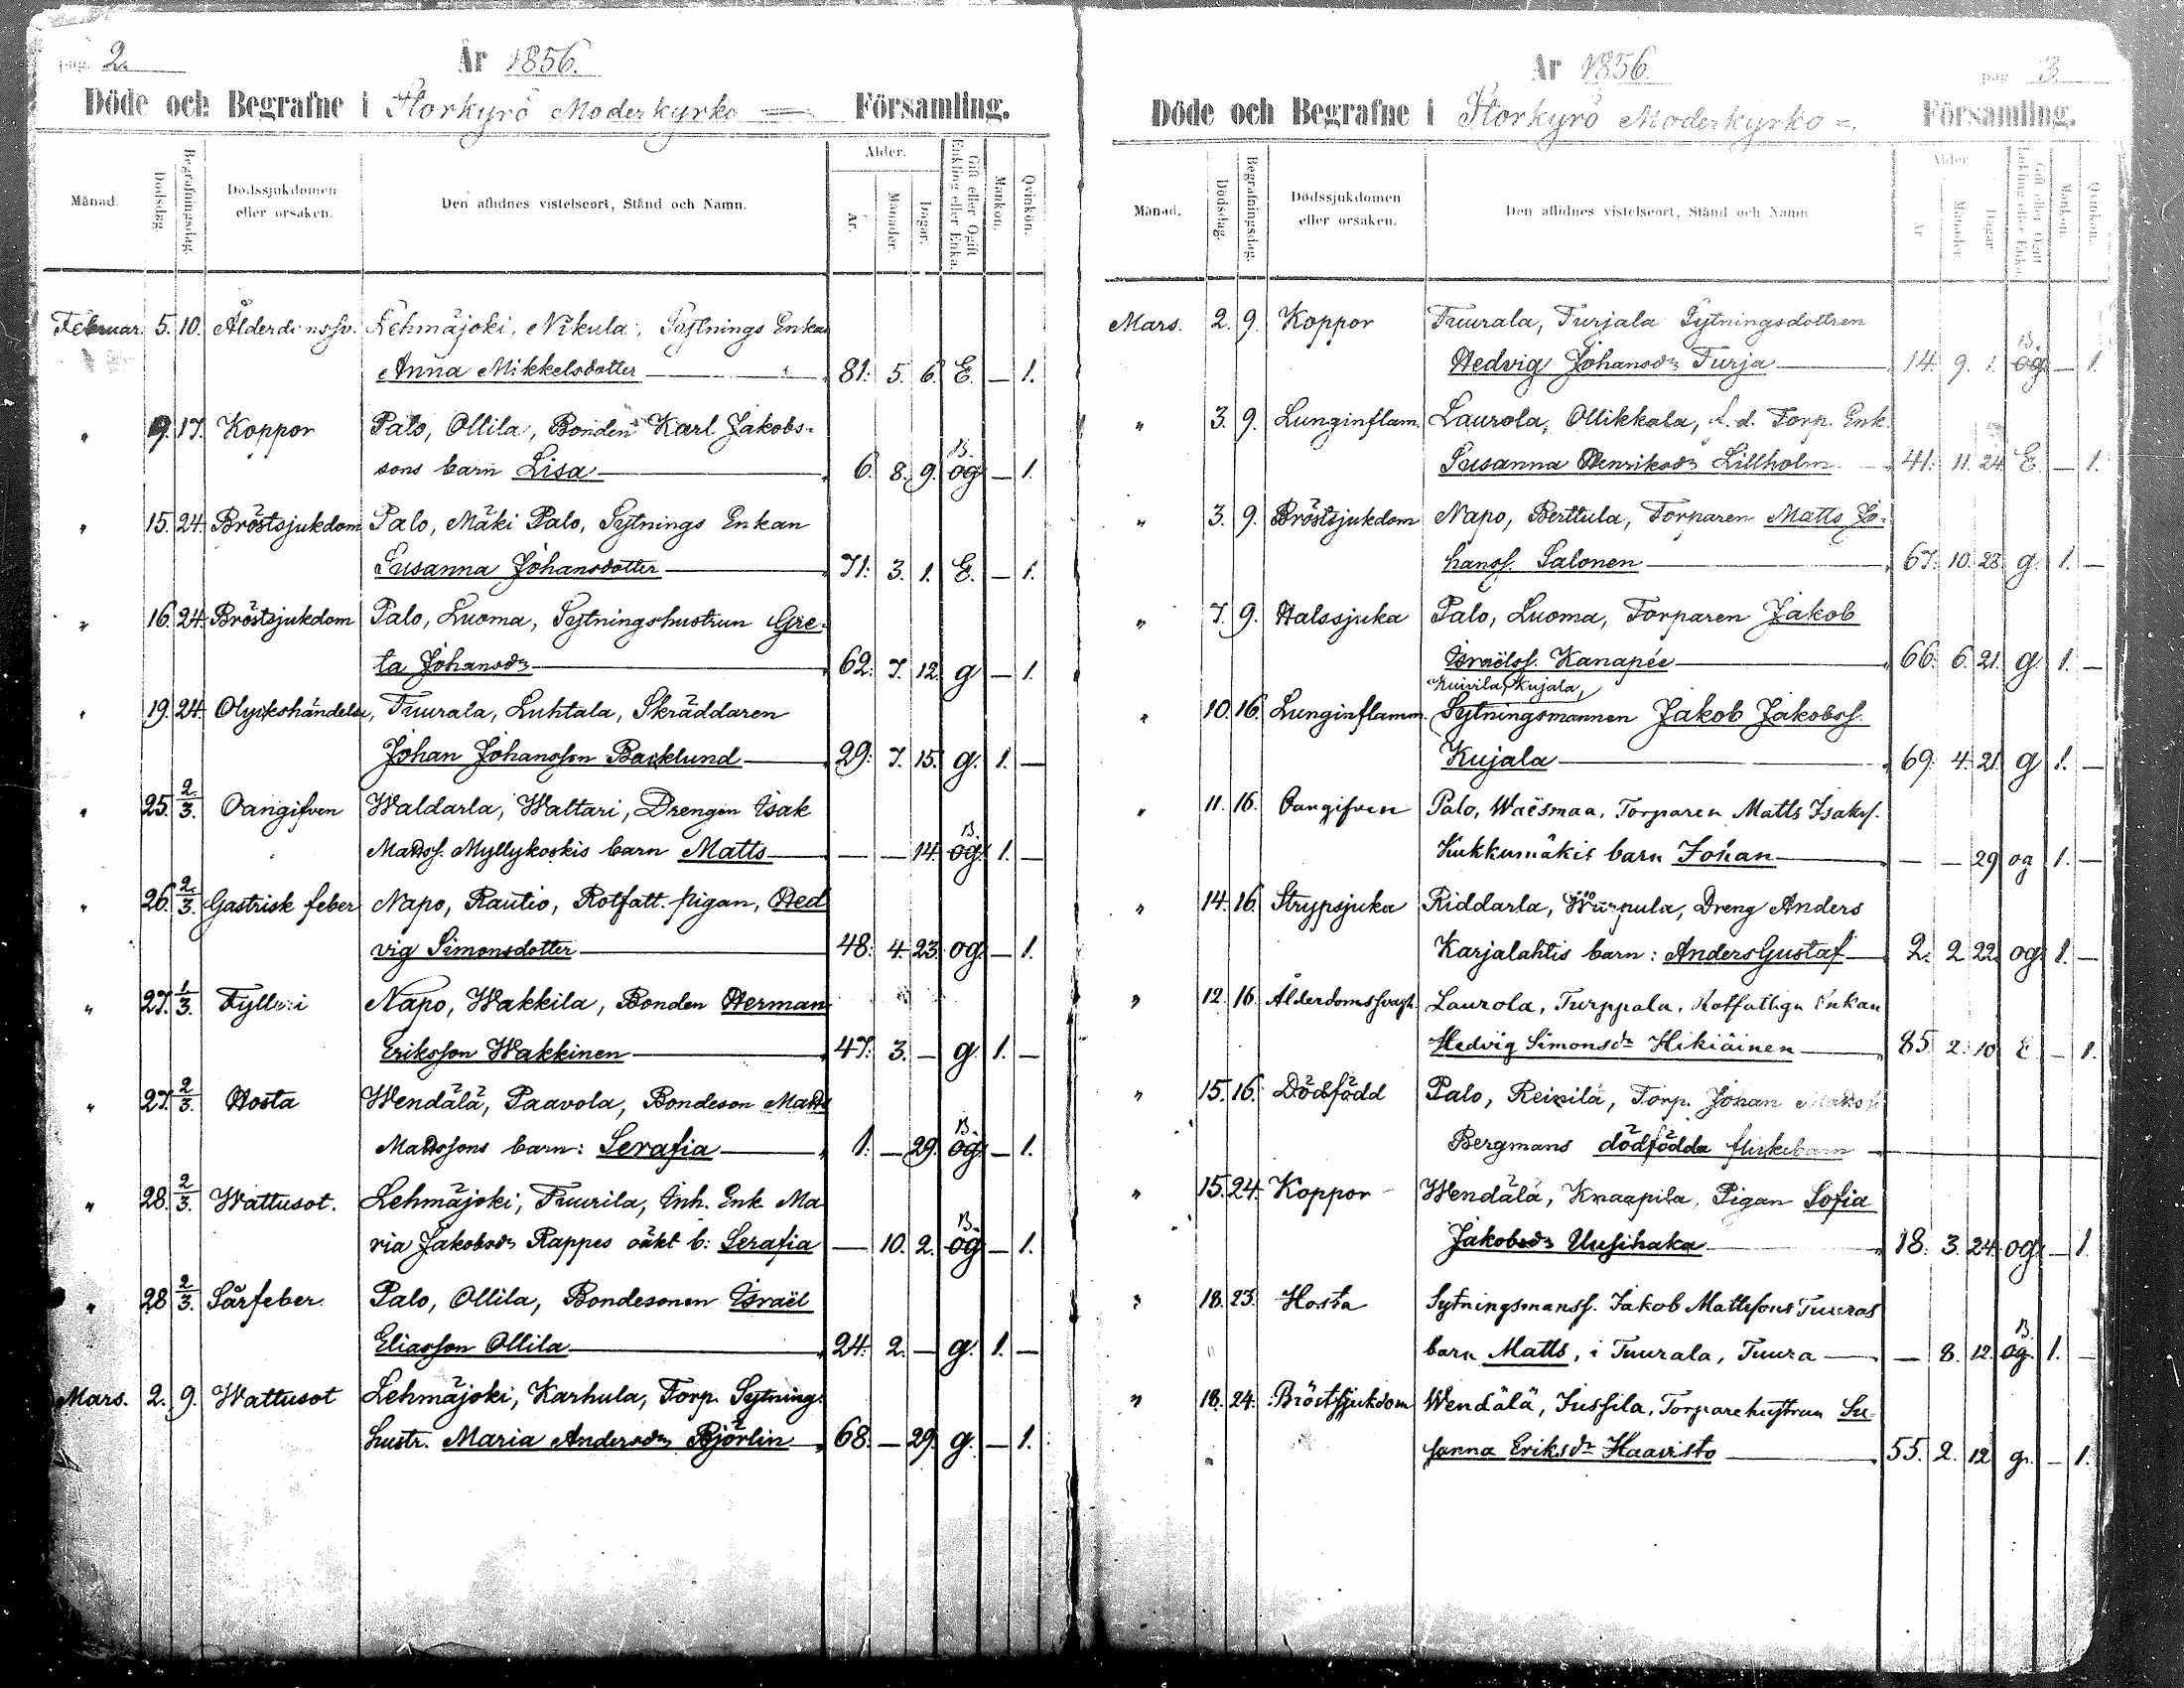 pag. 2.
År 1856.
Döde och Begrafne i Storkyrö Moderkyrko Församling.
Månad. Dödsdag. Begrafningsdag. Dödssjukdomen eller orsaken. Den aflidnes vistelseort, Stånd och Namn. Ålder. År. Månader. Dagar. Gift eller Ogift Enkling eller Enka. Mankön. Qvinkön.
Februar. 5. 10. Ålderdomssv. Lehmäjoki, Nikula, Sytnings Enkan
Anna Mikkelsdotter 81. 5. 6. E. — 1.
" 9. 17. Koppor Palo, Ollila, Bonden Karl Jakobs-
sons barn Lisa 6. 8. 9. B. og — 1.
" 15. 24. Bröstsjukdom Palo, Mäki Palo, Sytnings Enkan
Susanna Johansdotter 71. 3. 1. E. — 1.
" 16. 24. Bröstsjukdom Palo, Luoma, Sytningshustrun Gre-
ta Johansdr 62. 7. 12. g — 1.
" 19. 24. Olyckshändelse, Tuurala, Luhtala, Skräddaren
Johan Johansson Backlund 29. 7. 15. g. 1. —
" 25. 2/3. Oangifven Waldarla, Waltari, Drengen Isak
Matss. Myllykoskis barn Matts — — 14. B. og. 1. —
" 26. 2/3. Gastrisk feber Napo, Rautio, Rotfatt. pigan, Hed
vig Simonsdotter 48. 4. 23. og. — 1.
" 27. 1/3. Fylleri Napo, Wakkila, Bonden Herman
Eriksson Wakkinen 47. 3. — g. 1. —
" 27. 2/3. Hosta Wendälä, Paavola, Bondeson Matts
Matssons barn: Serafia 1. — 29. B. og. — 1.
" 28. 2/3. Wattusot. Lehmäjoki, Tuurila, Inh. Enk. Ma
ria Jakobsdr Rappes oäkt b: Serafia — 10. 2. B. og — 1.
" 28 2/3. Sårfeber. Palo, Ollila, Bondesonen Israël
Eliasson Ollila 24. 2. — g. 1. —
Mars. 2. 9. Wattusot Lehmäjoki, Karhula, Torp. Sytnings
hustr. Maria Andersdr Björlin 68. — 29. g. — 1.
År 1856.
pag. 3
Döde och Begrafne i Storkyrö Moderkyrko Församling.
Månad. Dödsdag. Begrafningsdag. Dödssjukdomen eller orsaken. Den aflidnes vistelseort, Stånd och Namn Ålder År Månader Dagar Gift eller Ogift Enkling eller Enka Mankön. Qvinkön.
Mars. 2. 9. Koppor Tuurala, Turjala Sytningsdottren
Hedvig Johansdr Turja 14. 9. 1. B. og — 1.
" 3. 9. Lunginflam. Laurola, Ollikkala, f. d. Torp. Enk.
Susanna Henriksdr Lillholm 41. 11. 24. E. — 1.
" 3. 9. Bröstsjukdom Napo, Berttula, Torparen Matts Jo-
hanss. Salonen 67. 10. 28. g. 1. —
" 7. 9. Halssjuka Palo, Luoma, Torparen Jakob
Israëlss. Kanapée 66. 6. 21. g. 1. —
Kuivila, Kujala,
" 10. 16. Lunginflamm. Sytningsmannen Jakob Jakobss.
Kujala 69. 4. 21. g. 1. —
" 11. 16. Oangifven Palo, Waësmaa, Torparen Matts Isakss.
Kukkumäkis barn Johan — — 29 og 1. —
" 14. 16. Strypsjuka Riddarla, Dreng Anders
Karjalahtis barn: Anders Gustaf 2. 2 22 og 1. —
" 12. 16. Ålderdomssvagh. Laurola, Turppala, Rotfattiga Enkan
Hedvig Simonsdr Hikiäinen 85. 2. 10 E — 1.
" 15. 16. Dödfödd Palo, Reinilä, Torp. Johan
Bergmans dödfödda flickebarn
" 15. 24. Koppor Wendälä, Knaapila, Pigan Sofia
Jakobsdr Uusihaka 18. 3. 24. og. — 1
" 18. 23. Hosta Sytningsmanss. Jakob Mattssons Tuuras
barn Matts, i Tuurala, Tuura — 8. 12. B. og. 1. —
" 18. 24. Bröstsjukdom Wendälä, Jussila, Torparehustrun Su-
sanna Eriksdr Haavisto 55. 2. 12 g. — 1.